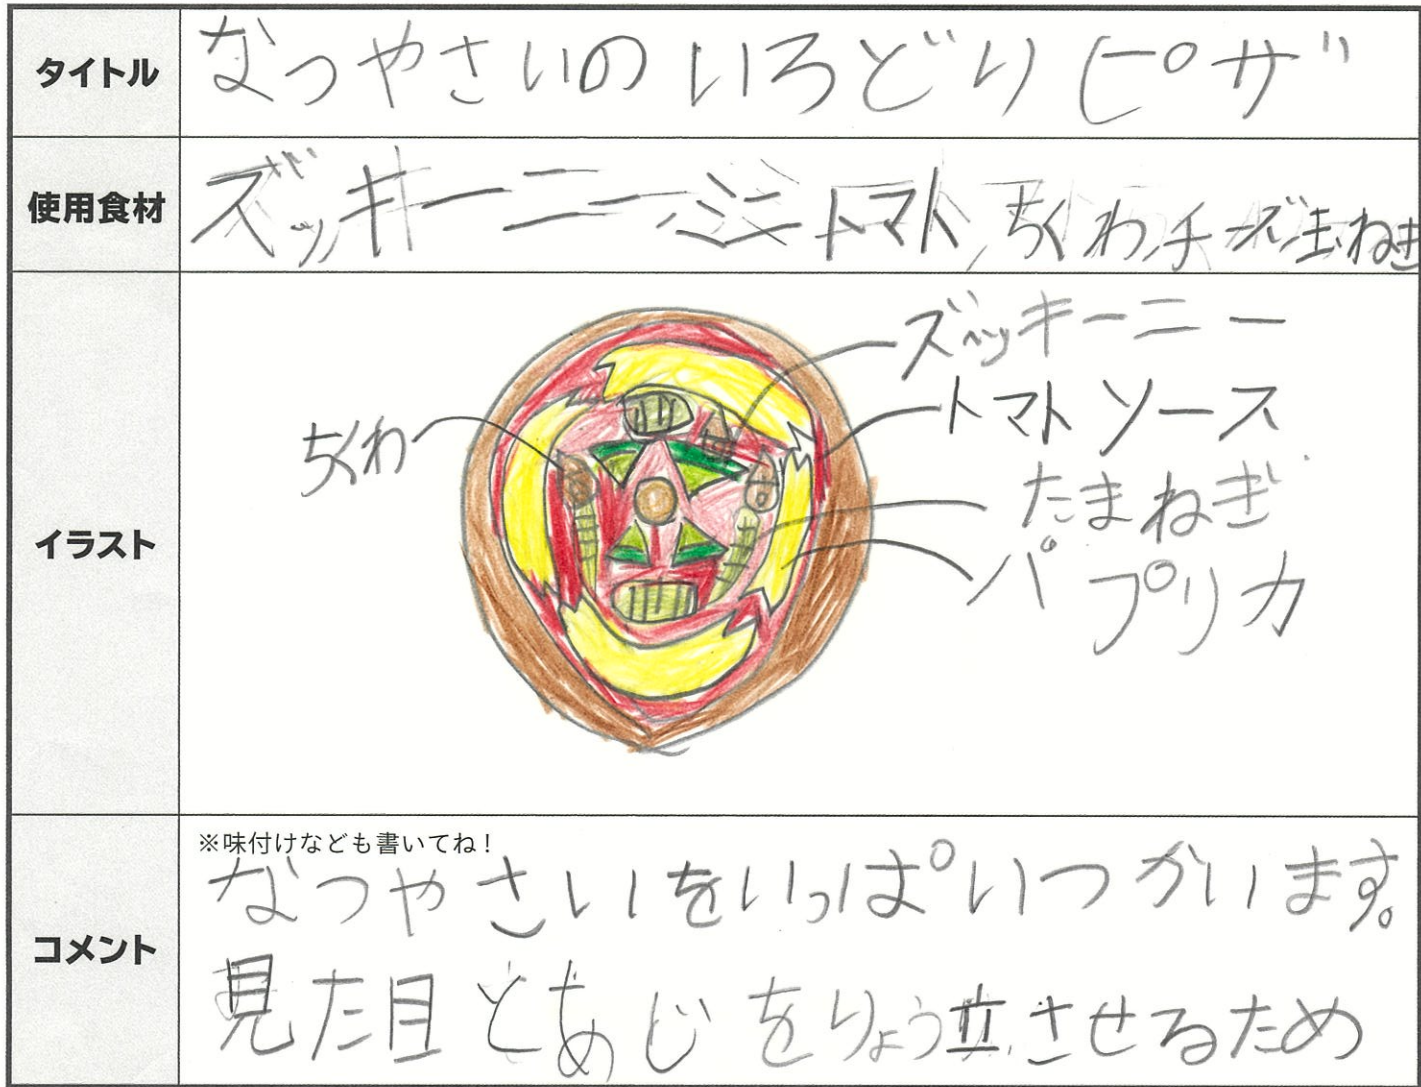 タイトル
なつやさいのいろどりピザ
使用食材
ズッキーニー ミニトマト ちくわ チーズ 玉ねぎ
イラスト
ズッキーニー
トマトソース
ちくわ
たまねぎ
パプリカ
コメント
※味付けなども書いてね!
なつやさいをいっぱいつかいます。
見た目とあじをりょう立させるため